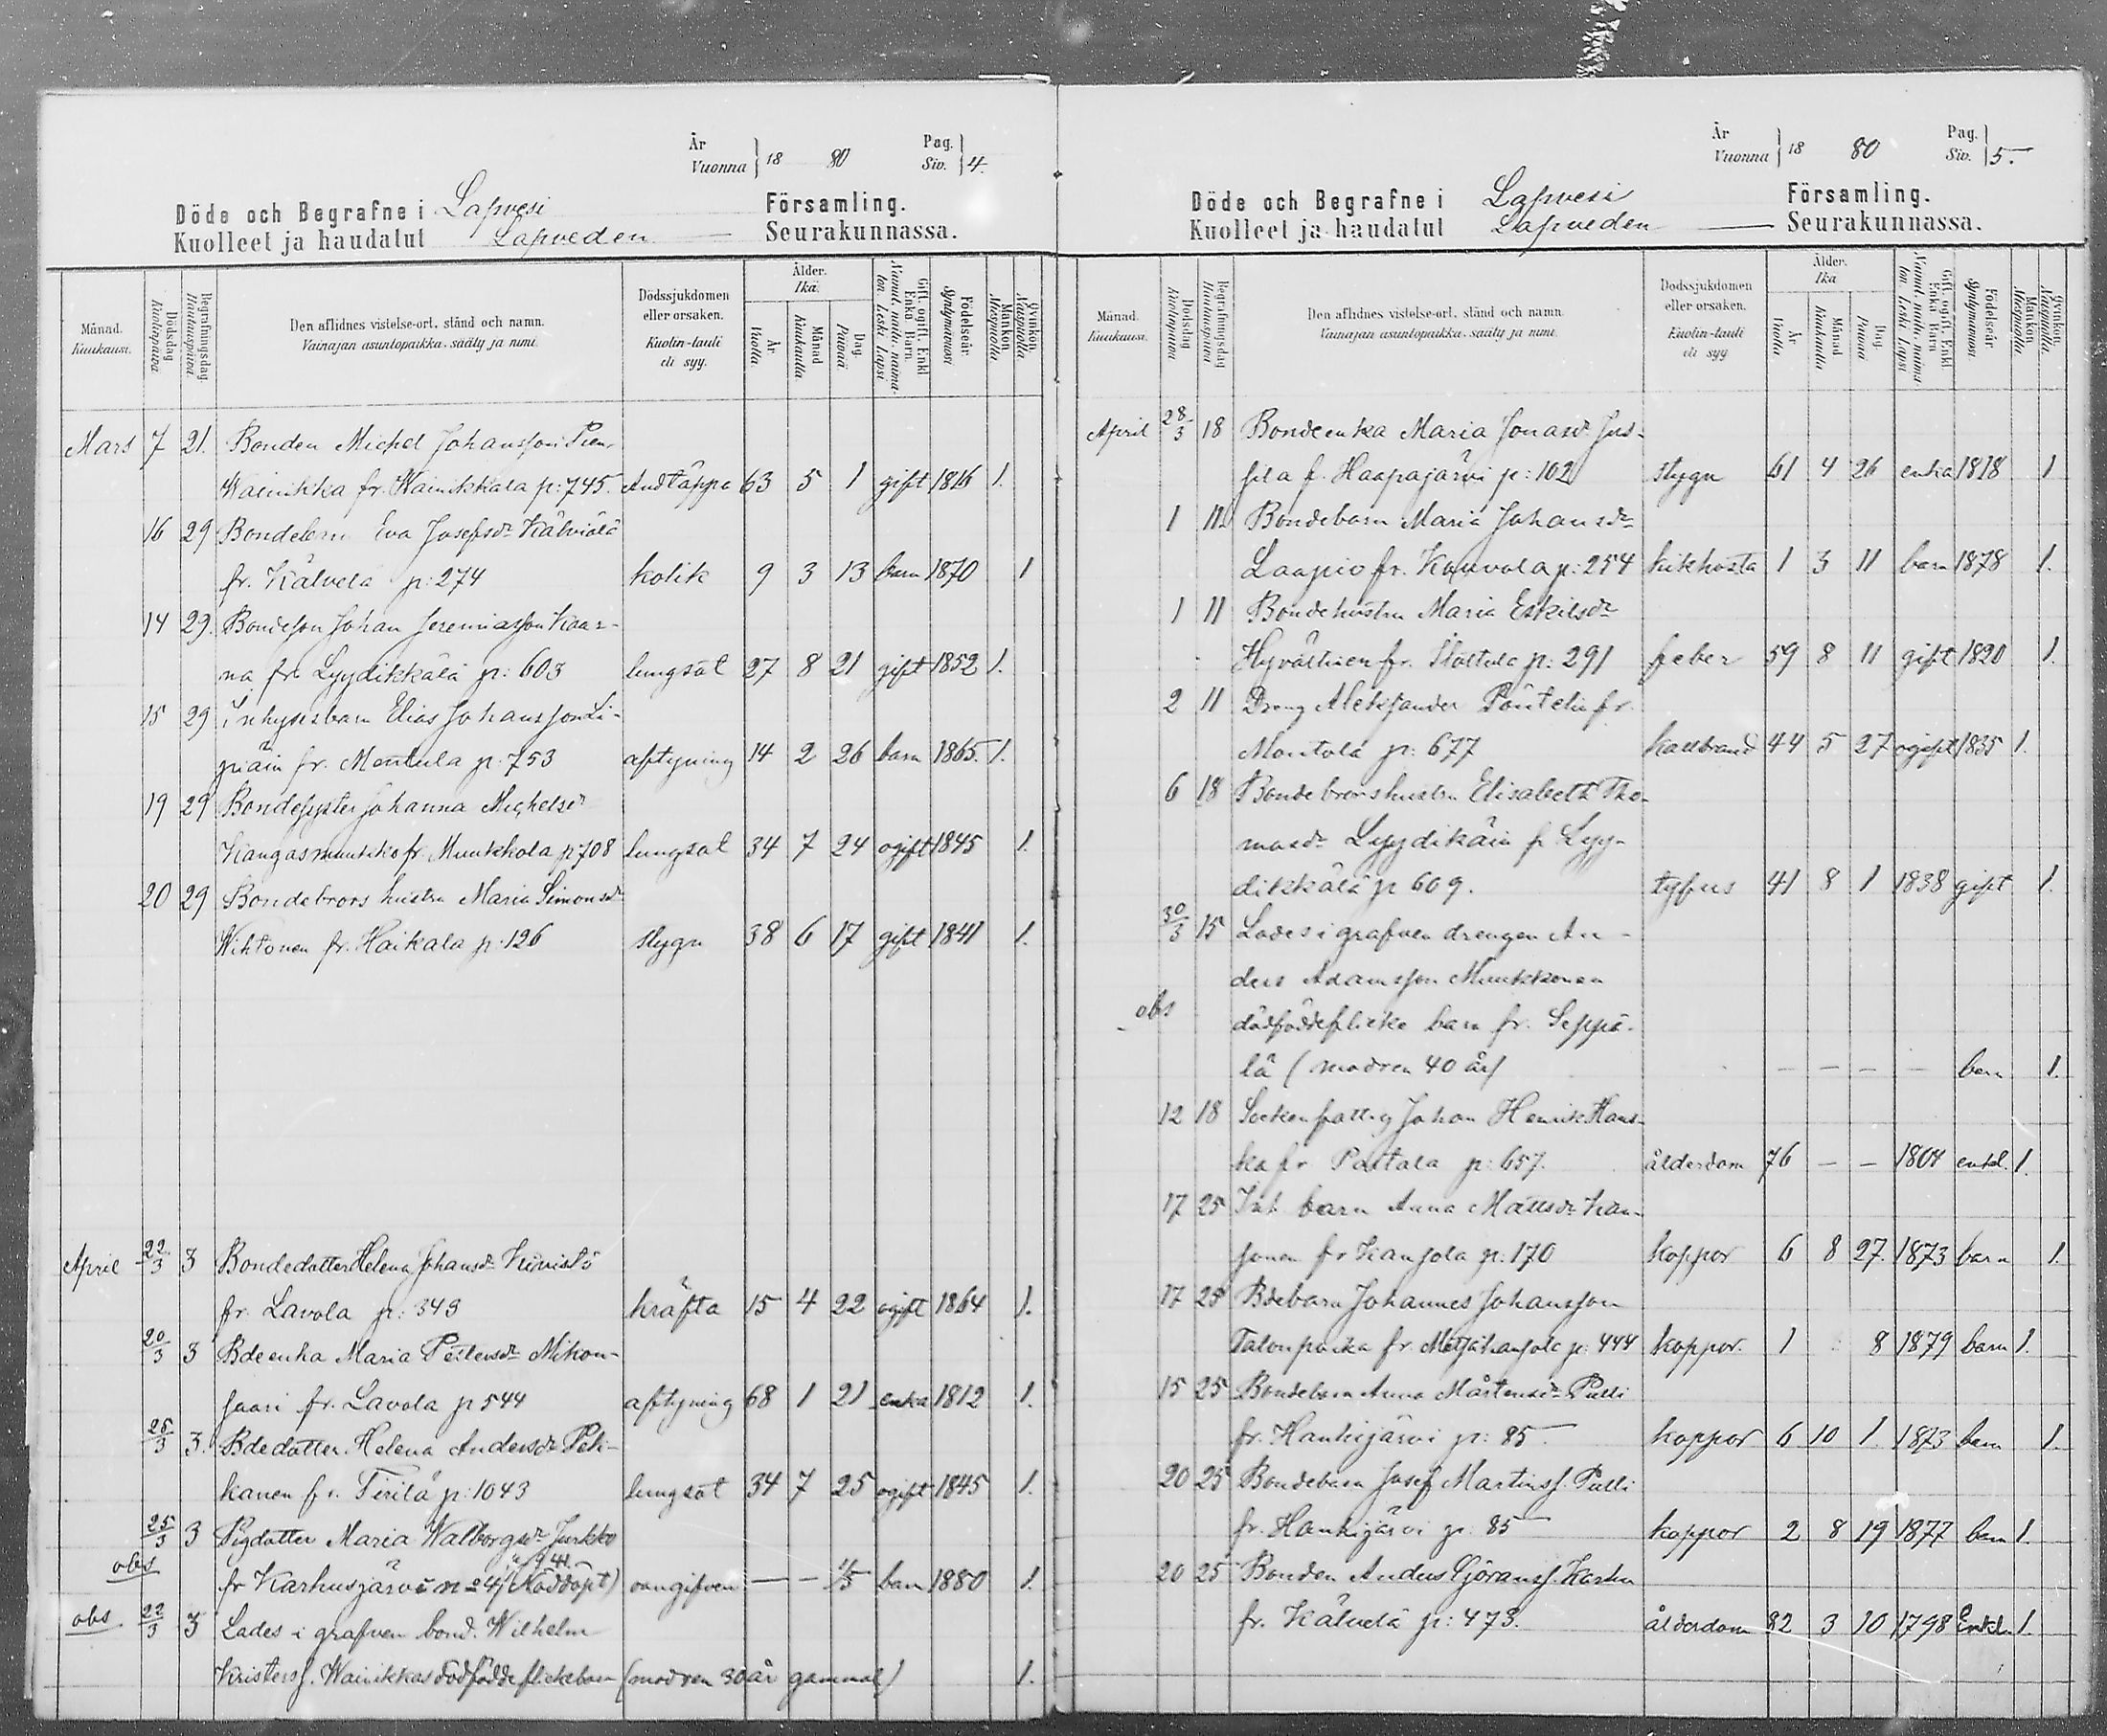 År
Vuonna 18 80 Pag. Siv. 4.
Döde och Begrafne i Lapvesi Församling.
Kuolleet ja haudatut Lapveden Seurakunnassa.
Månad. Kuukausi. Dödsdag Kuolinpäivä Begrafningsdag Hautauspäivä Den aflidnes vistelse-ort, stånd och namn. Vainajan asuntopaikka, sääty ja nimi. Dödssjukdomen eller orsaken. Kuolin-tauti eli syy. Ålder. Ikä. År Vuotta Månad Kuukautta Dag. Päivää Gift, ogift, Enkl. Enka. Barn. Födelseår. Syntymävuosi Mankön. Miespuolta Qvinkön. Naispuolta
Mars 7 21. Bonden Michel Johansson Pien-
Wainikka fr. Wainikkala p: 745. Andtäppa 63 5 1 gift 1816 1.
16 29 Bondebarn Eva Josefsdr Kälviälä
fr. Kälvelä p: 274 kolik 9 3 13 barn 1870 1
14 29. Bondeson Johan Jeremiasson Kaar-
na fr. Lyydikkälä p: 603 lungsot 27 8 21 gift 1852 1.
15 29 Inhysesbarn Elias Johansson Li-
piäin fr. Montula p: 753 aftyning 14 2 26 barn 1865. 1.
19 29 Bondesyster Johanna Michelsdr
Kangasmunkko fr. Munkkola p 708 lungsot 34 7 24 ogift 1845 1.
20 29 Bondebrors hustru Maria Simonsdr
Wihtonen fr. Haikala p: 126 stygn 38 6 17 gift 1841 1.
April 22/3 3 Bondedotter Helena Johansdr Kiivistö
fr. Lavola p: 343 kräfta 15 4 22 ogift 1864 1.
20/3 3 Bdeenka Maria Pettersdr Mikon-
saari fr. Lavola p 544 aftyning 68 1 21 enka 1812 1.
28/3 3. Bdedotter Helena Andersdr Pek-
kanen fr. Tirilä p: 1043 lungsot 34 7 25 ogift 1845 1.
25/3 3 Pigdotter Maria Walborgsdr Jurkko
obs fr Karhusjärvi n=o 4 (Nöddöpt) oangifven — — barn 1880 1.
obs. 22/3 3 Lades i grafven bond. Wilhelm
Kristerss. Wainikkas dödfödde flickebarn (modren 30 år gammal) 1.
År
Vuonna 18 80 Pag. Siv. 5.
Döde och Begrafne i Lapvesi Församling.
Kuolleet ja haudatut Lapveden Seurakunnassa.
Månad. Kuukausi. Dödsdag Kuolinpäivä Begrafningsdag Hautauspäivä Den aflidnes vistelse-ort, stånd och namn. Vainajan asuntopaikka, sääty ja nimi. Dödssjukdomen eller orsaken. Kuolin-tauti eli syy Ålder. Ikä År Vuotta Månad Kuukautta Dag. Päivää Gift, ogift, Enkl. Enka Barn Födelseår. Syntymävuosi Mankön. Miespuolta Qvinkön. Naispuolta.
April 28/3 18 Bondeenka Maria Jonasdr Jus-
sila f. Haapajärvi p: 102 stygn 61 4 26 enka 1818 1
1 11. Bondebarn Maria Johansdr
Laapio fr. Kauvola p: 254 kikhosta 1 3 11 barn 1878 1.
1 11 Bondehustru Maria Eskilsdr
Hyvättinen fr. p: 291 feber 59 8 11 gift 1820 1.
2 11 Dreng Aleksander Pöntelin fr.
Montola p: 677 kallbrand 44 5 27 ogift 1835 1.
6 18 Bondebrorshustru Elisabeth Tho-
masdr Lyydikäin fr Lyy-
dikkälä p 609. tyfus 41 8 1 1838 gift 1.
30/3 15 Lades i grafven drengen An-
ders Adamsson Munkkonen
obs dödfödde flicke barn fr. Seppä-
lä (modren 40 år) — — — — barn 1.
12 18 Sockenfattig Johan Henrik Hans-
ka fr Partala p: 657. ålderdom 76 — — 1804 enkl. 1.
17 25 Inh barn Anna Mattsdr Kan-
sonen fr Kansola p: 170 koppor 6 8 27. 1873 barn 1.
17 25 Bdebarn Johannes Johansson
Talonpoika fr. Metsähansola p: 444 koppor. 1 8 1879 barn 1.
15 25 Bondebarn Anna Mårtensdr Pulli
fr. Hanhijärvi p: 85 koppor 6 10 1. 1873 barn 1.
20 25 Bondebarn Josef Martinss. Pulli
fr. Hanhijärvi p: 85 koppor 2 8 19 1877 barn 1.
20 25 Bonden Anders Göranss. Karhu
fr. Kälvelä p: 473. ålderdom 82 3 10 1798 Enkl. 1.